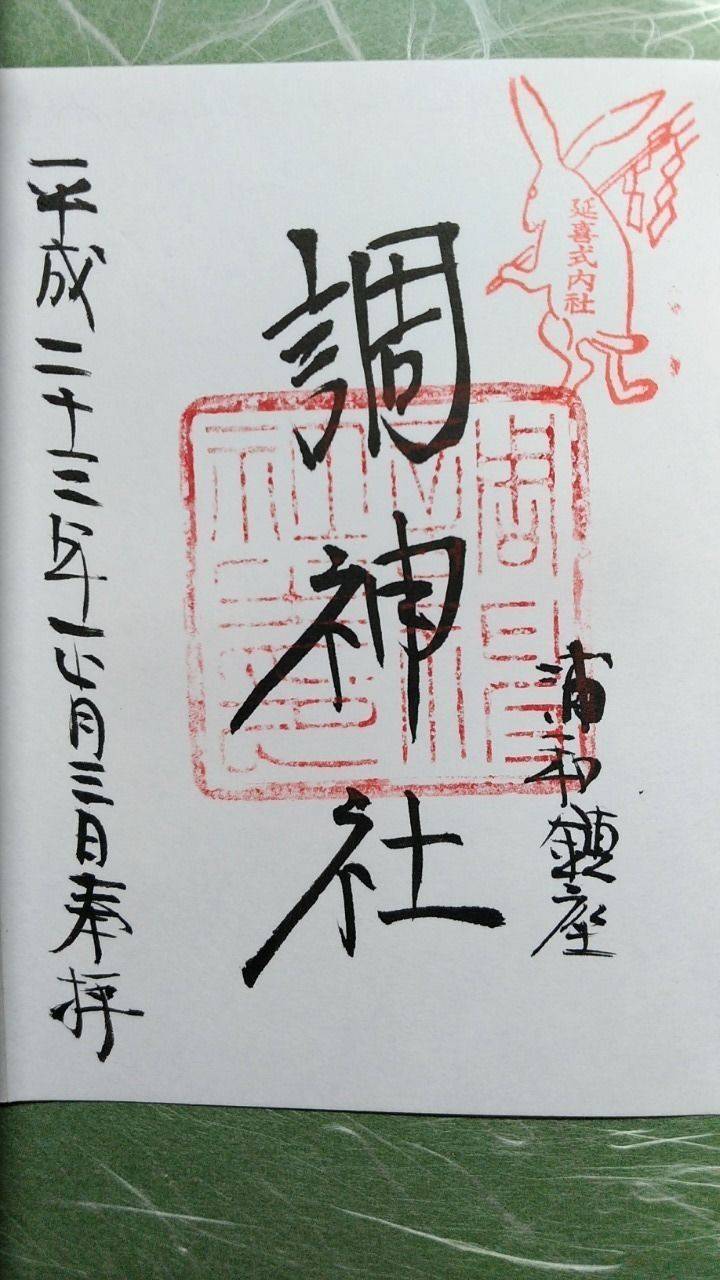 延喜式内社
浦和鎮座
調神社
平成二十三年正月三日奉拝